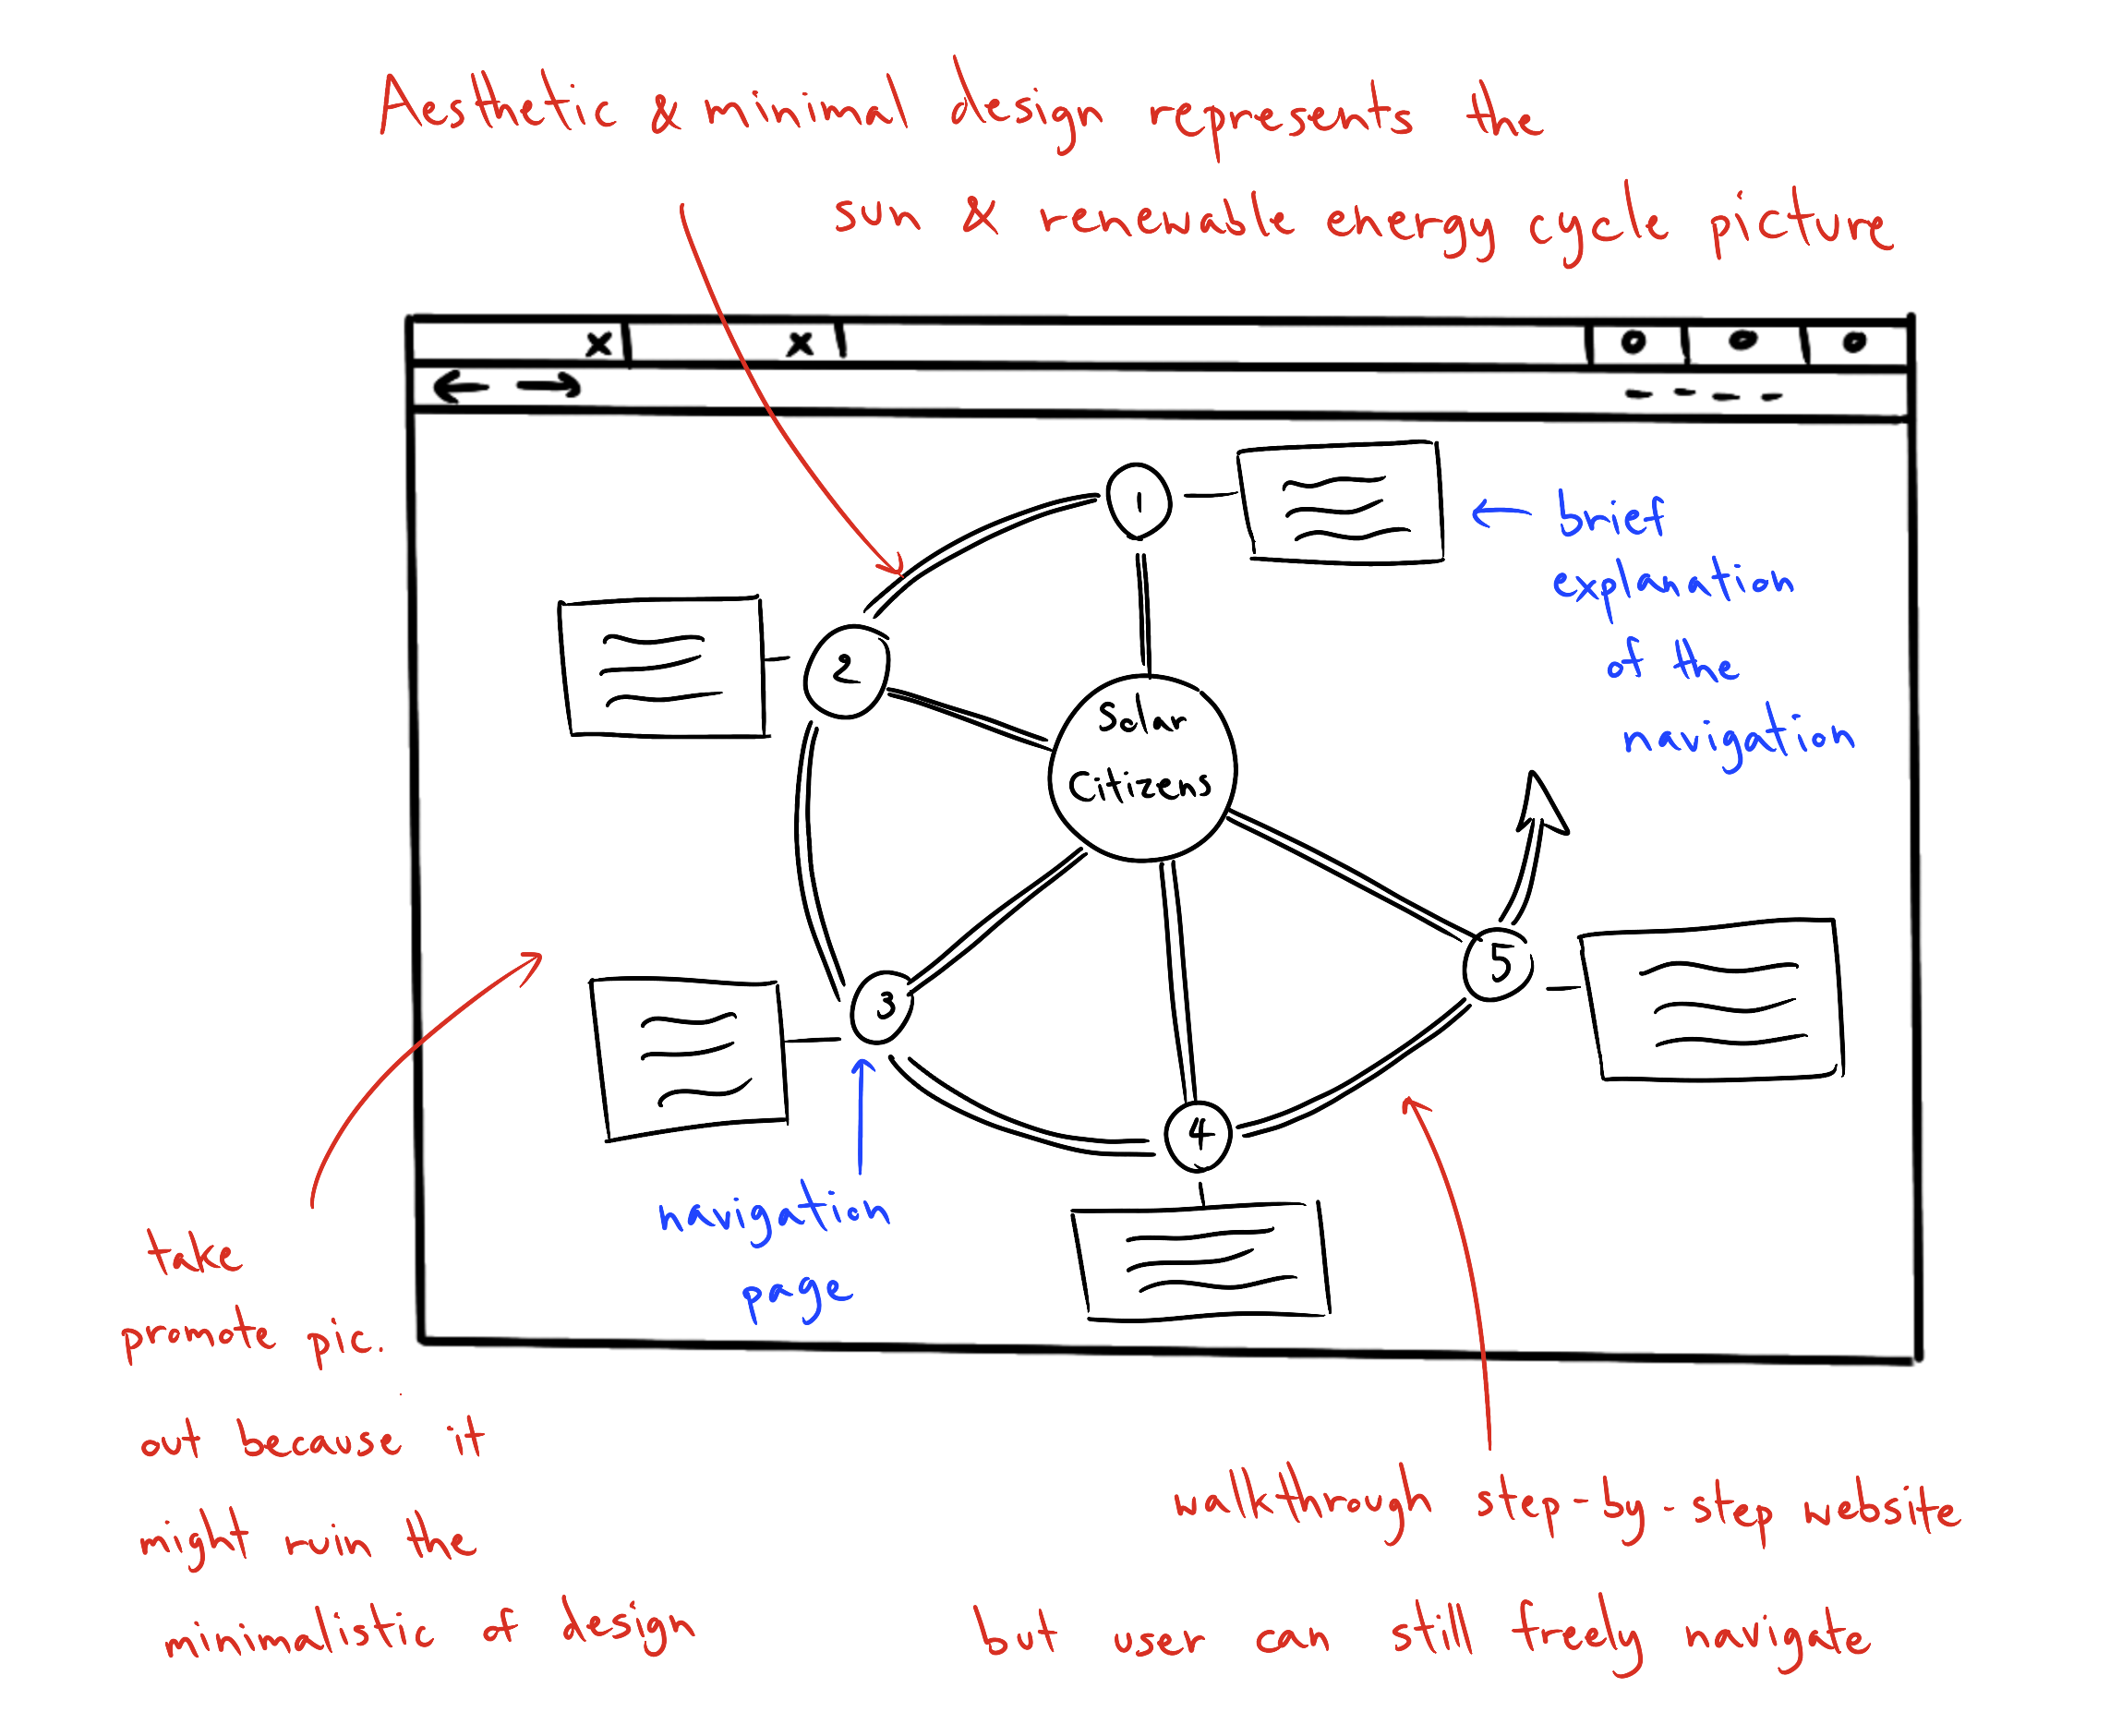 Aesthetic & minimal design represents the
sun & renewable energy cycle picture
x x
1
brief
explanation
of the
navigation
2
Solar
Citizens
3
4
5
navigation
page
take
promote pic.
out because it
might ruin the
minimalistic of design
walkthrough step-by-step website
but user can still freely navigate